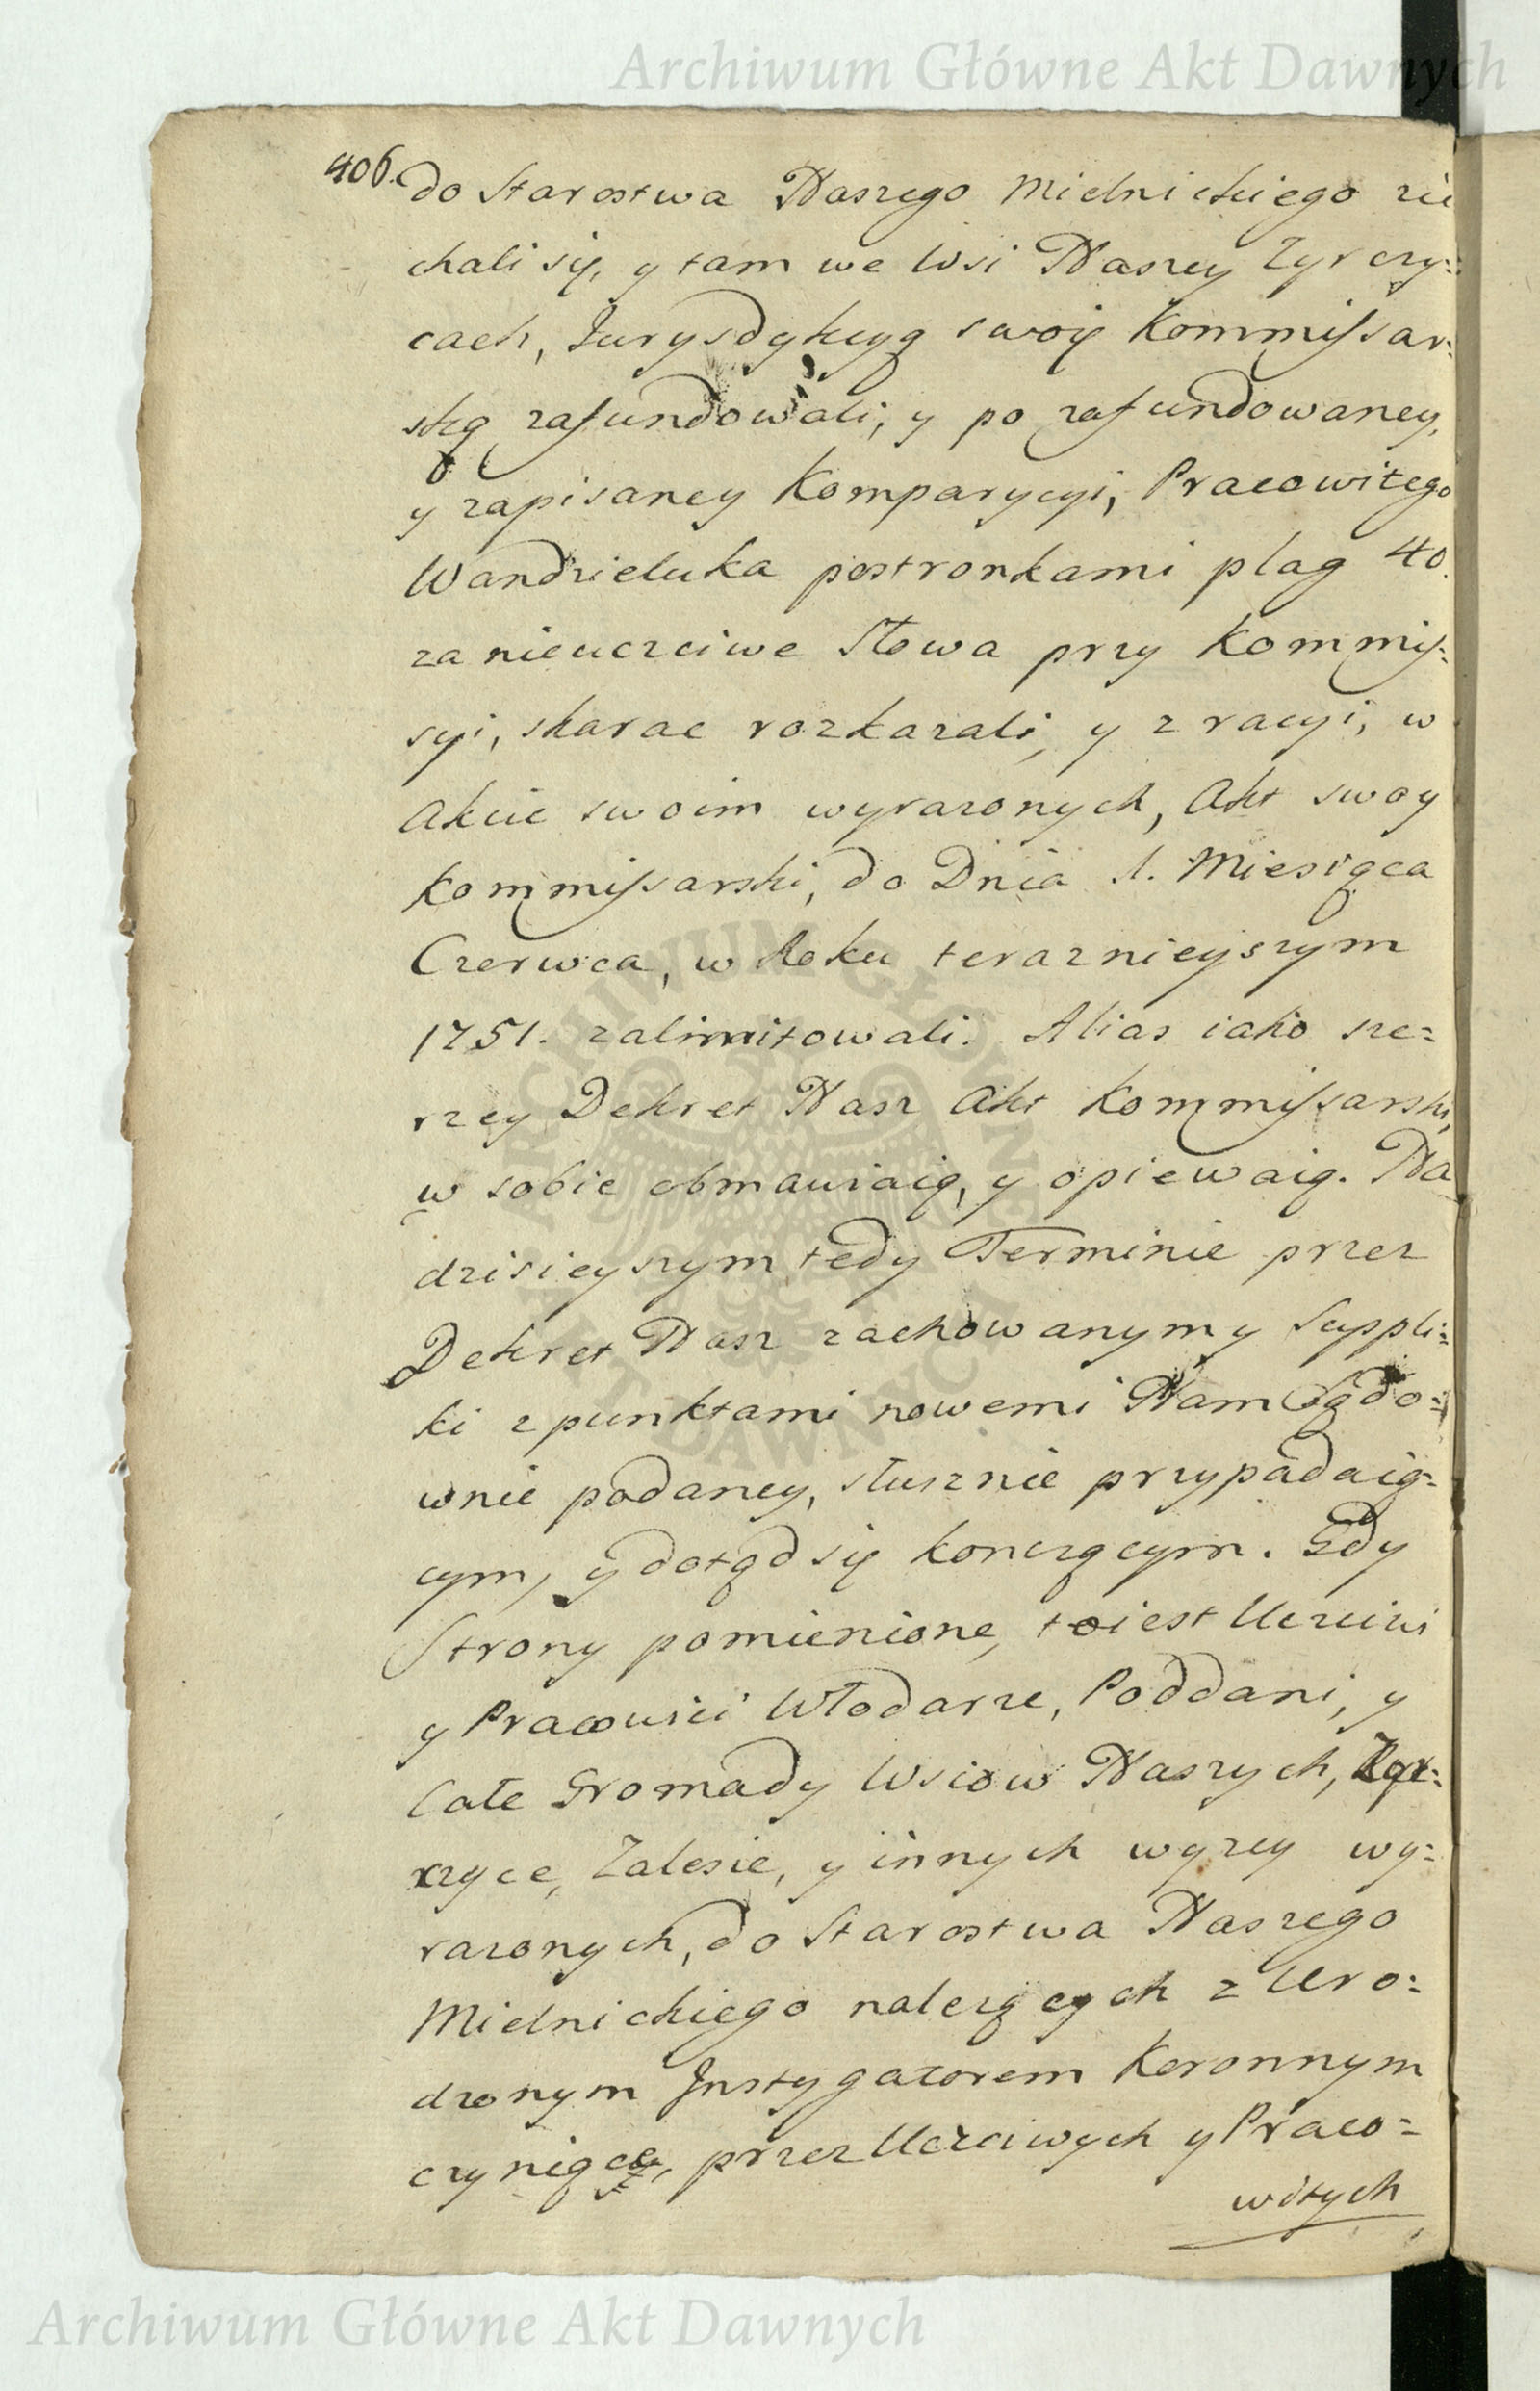 Archiwum Główne Akt Dawnych
406. do Starostwa Naszego Mielnickiego zie
chali się, y tam we Wsi Naszey Zyrczy=
cach, Jurysdykcyą swoię Kommissar=
ską zafundowali, y po zafundowaney,
y zapisaney Komparycyi, Pracowitego
Wandzieluka postronkami plag 40.
za nieuczciwe Słowa przy Kommis=
syi, skarac rozkazali, y z racyi, w
Akcie swoim wyrazonych, Akt swoy
Kommissarski, do Dnia 1. Miesiąca
Czerwca, w Roku teraznieyszym
1751. zalimitowali. Alias iako sze=
rzey Dekret Nasz Akt Kommissarski,
w sobie obmawiaią, y opiewaią. Na
dzisieyszym tedy Terminie przez
Dekret Nasz zachowanym y Suppli=
ki z punktami nowemi Nam Sądo=
wnie podaney, słusznie przypadaią=
cym, y dotąd się konczącym. Gdy
Strony pomienione, to iest Uczciwi
y Pracowici Włodarze, Poddani, y
Całe Gromady Wsiow Naszych, Zyr=
czyce, Zalesie, y innych wyzey wy=
razonych, do Starostwa Naszego
Mielnickiego nalezących z Uro=
dzonym Instygatorem Koronnym
czyniące, przez Uczciwych y Praco=
witych
ARCHIWUM GŁÓWNE AKT DAWNYCH
Archiwum Główne Akt Dawnych